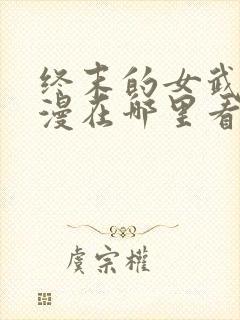 终末的女武
漫在哪里看
虞宗权